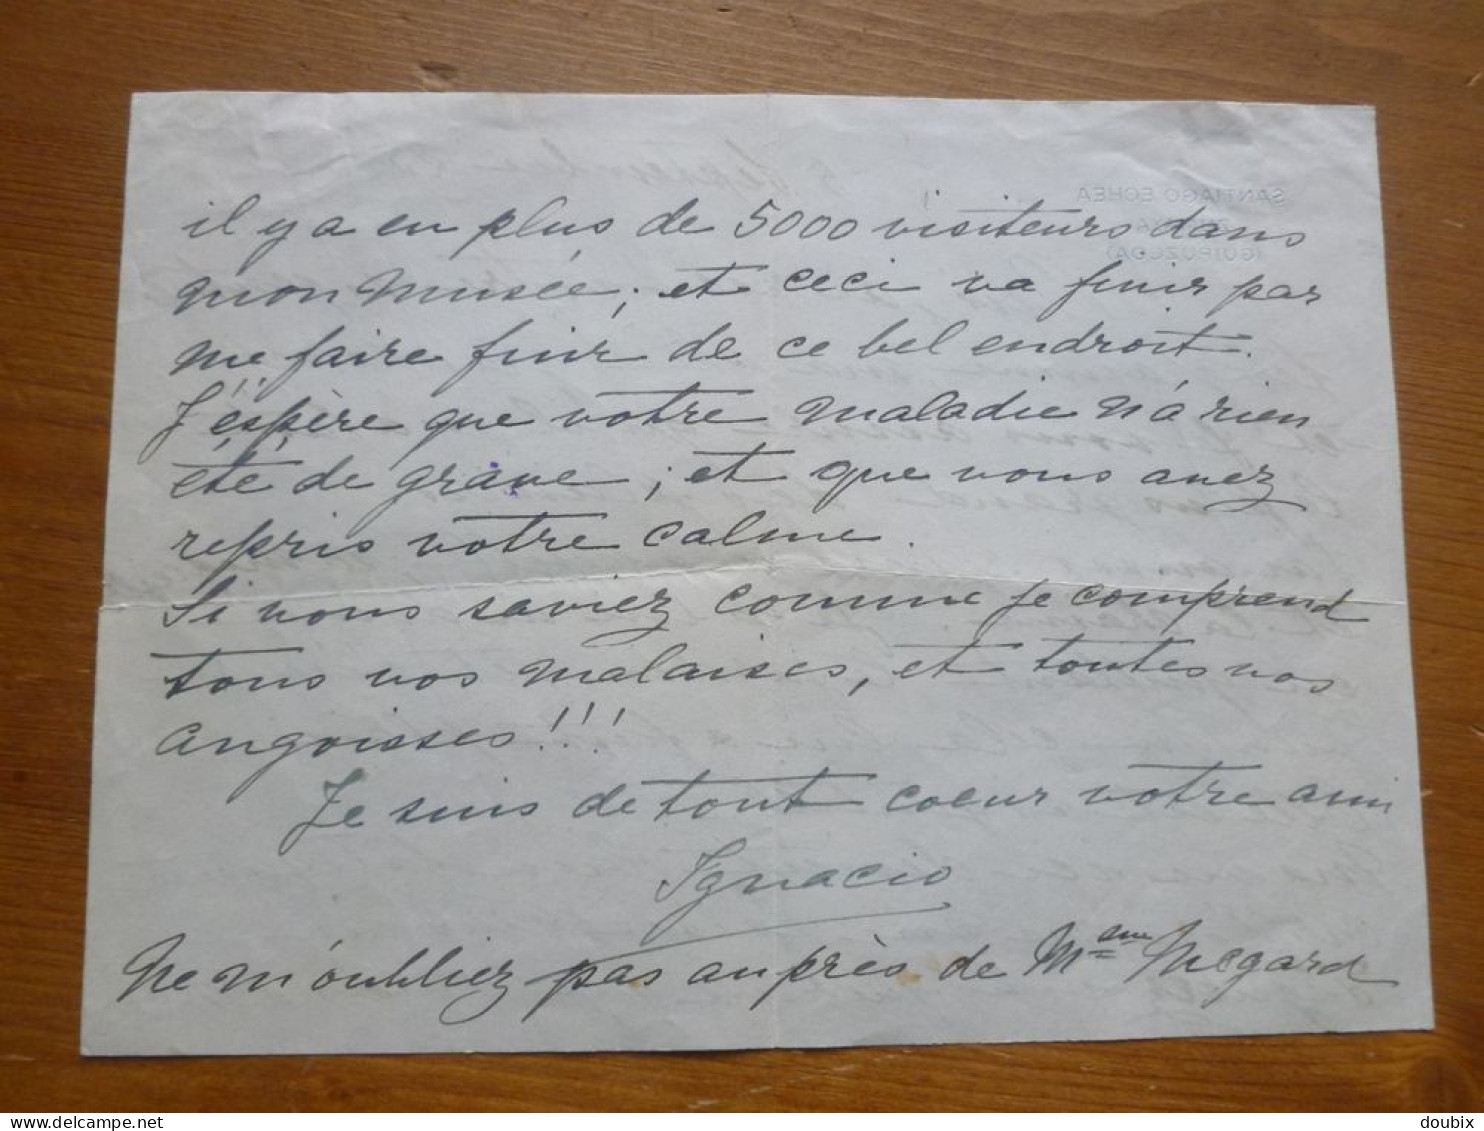 SANTIAGO ECHEA
(GUIPUZCOA)
il y a eu plus de 5000 visiteurs dans
mon Musée; et ceci va finir par
me faire fuir de ce bel endroit.
J'espère que votre maladie n'a rien
été de grave; et que vous avez
repris votre calme.
Si vous saviez comme je comprend
tous vos malaises, et toutes vos
angoisses!!!
Je suis de tout coeur votre ami
Ignacio
Ne m'oubliez pas auprès de Mme Megard
delcampe.net
doubix